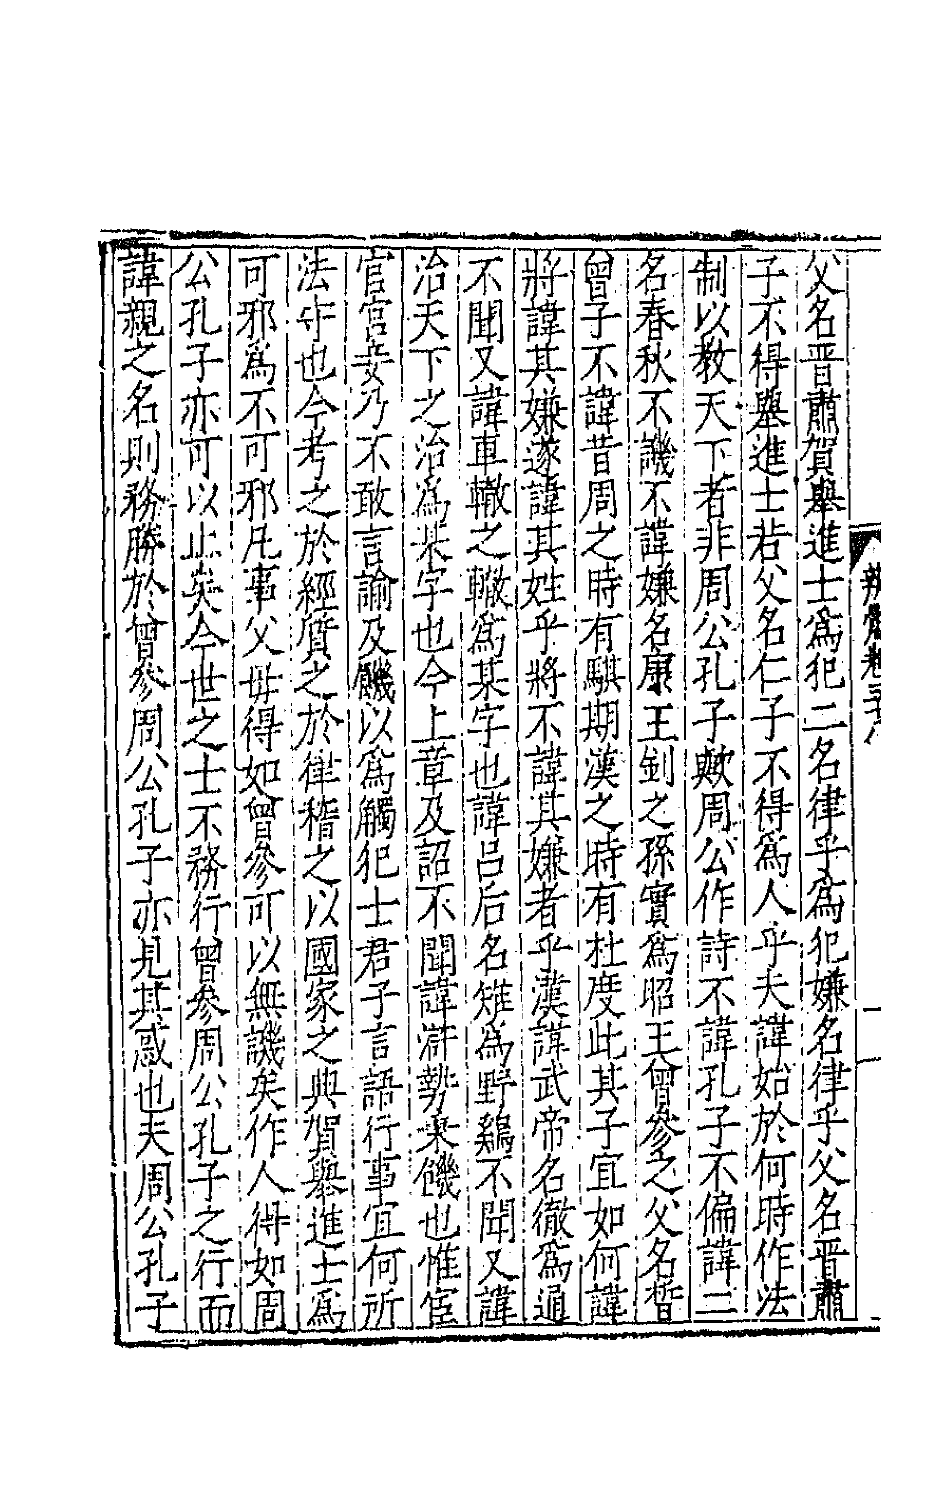 辨體卷
父名晋肅賀舉進士爲犯二名律乎爲犯嫌名律乎父名晋肅
子不得舉進士若父名仁子不得爲人乎夫諱始於何時作法
制以教天下者非周公孔子歟周公作詩不諱孔子不偏諱二
名春秋不譏不諱嫌名康王釗之孫實爲昭王曾參之父名晳
曾子不諱昔周之時有騏期漢之時有杜度此其子宜如何諱
將諱其嫌遂諱其姓乎將不諱其嫌者乎漢諱武帝名徹爲通
不聞又諱車轍之轍爲某字也諱吕后名雉爲野鷄不聞又諱
治天下之治爲某字也今上章及詔不聞諱滸勢秉饑也惟宦
官宮妾乃不敢言諭及饑以爲觸犯士君子言語行事宜何所
法守也今考之於經質之於律稽之以國家之典賀舉進士爲
可邪爲不可邪凡事父母得如曾參可以無譏矣作人得如周
公孔子亦可以止矣今世之士不務行曾參周公孔子之行而
諱親之名則務勝於曾參周公孔子亦見其惑也夫周公孔子